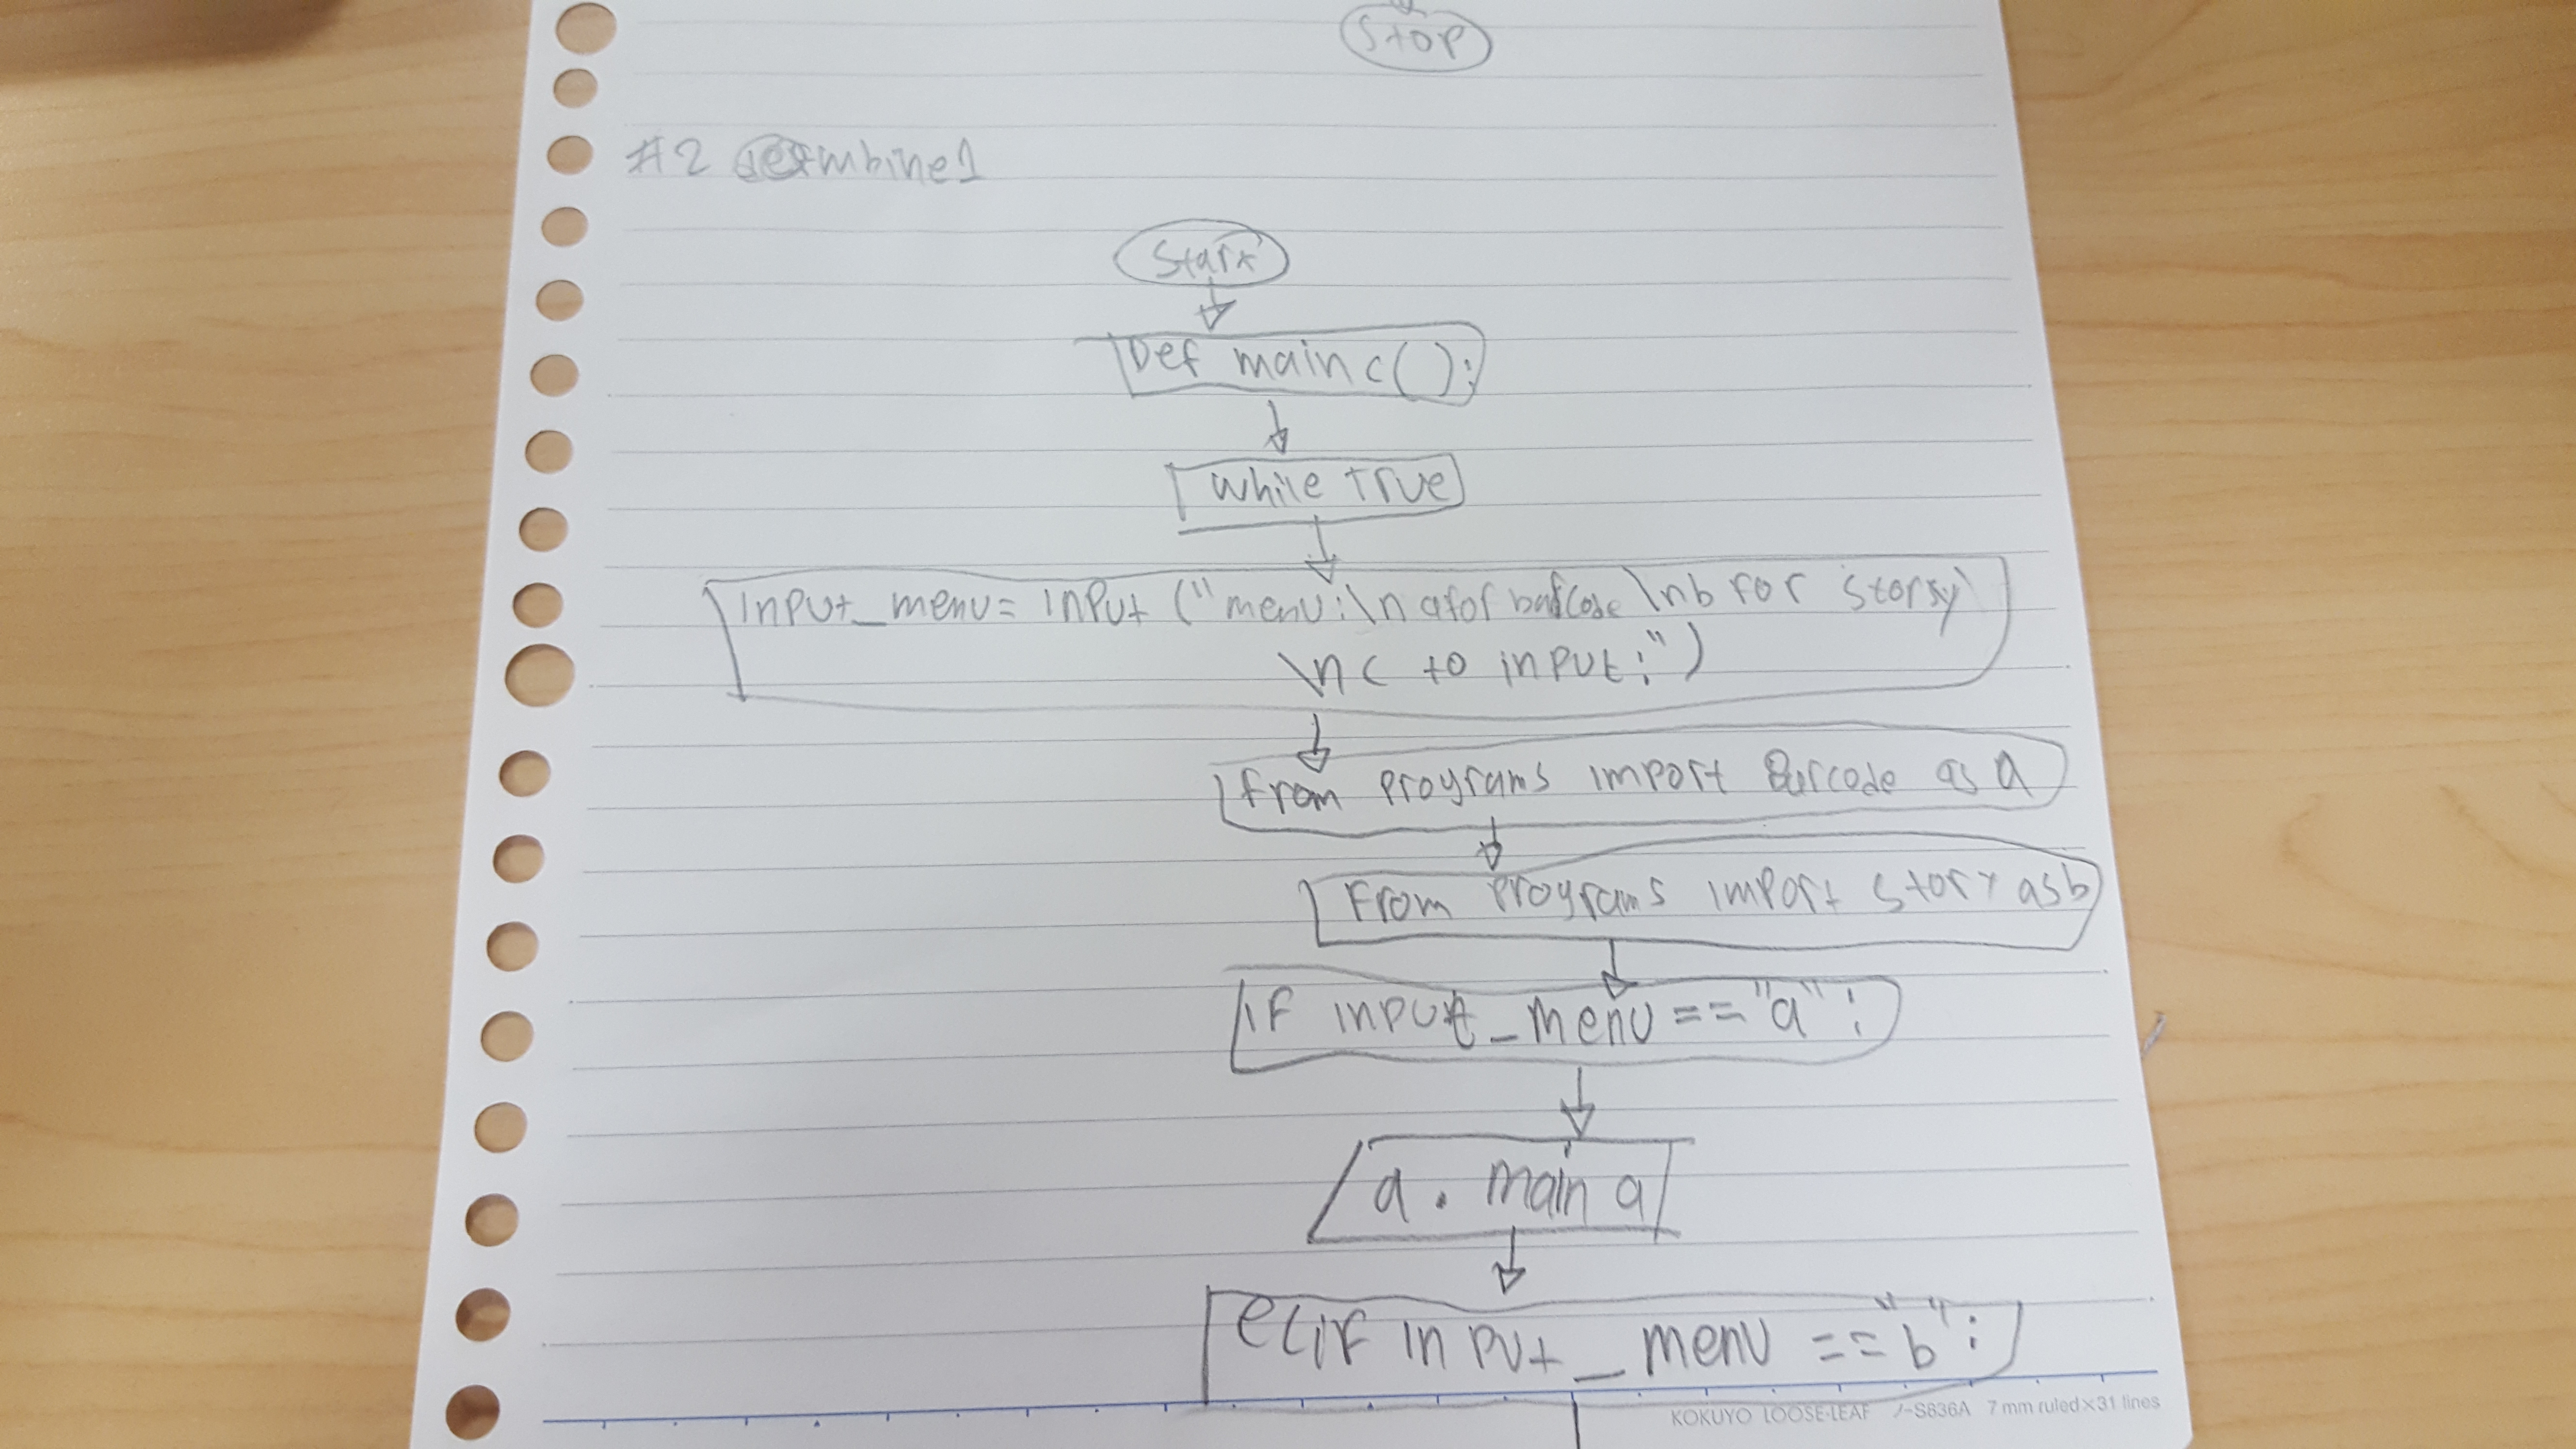 Stop
#2 combine1
Start
Def main c():
while true
input_menu = input ("menu:\n a for barcode \nb for story
\n c to input:")
from programs import Barcode as a
From programs import story as b
if input_menu == "a":
a. main a
elif input_menu == "b":
KOKUYO LOOSE-LEAF ノ-S836A 7 mm ruled×31 lines